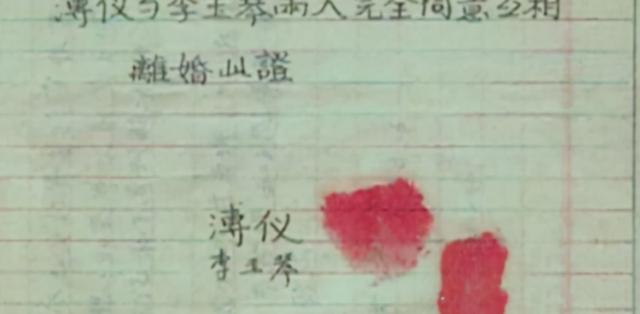 溥仪与李玉琴兩人完全同意互相
離婚此證
溥仪
李玉琴